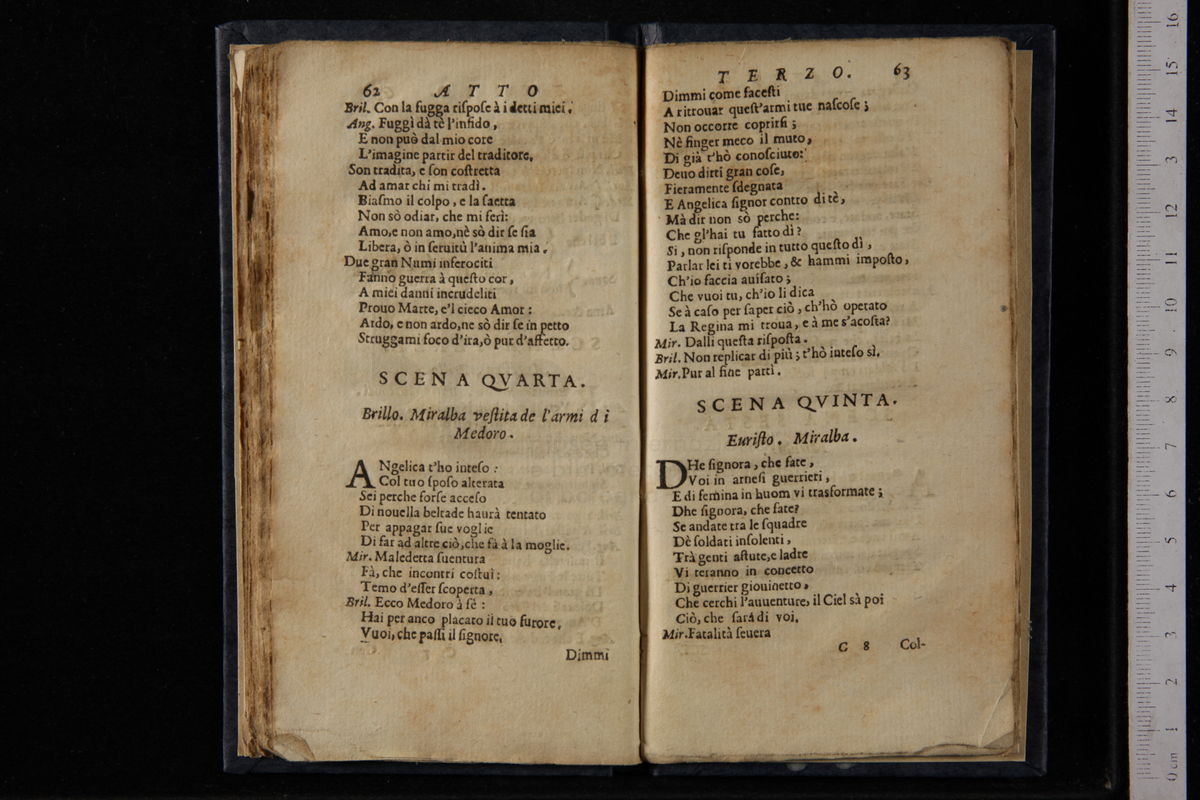 62 ATTO
Bril. Con la fugga riſpoſe à i detti miei.
Ang. Fuggì dà tè l'infido,
E non può dal mio core
L'imagine partir del traditore,
Son tradita, e ſon coſtretta
Ad amar chi mi tradì.
Biaſmo il colpo, e la ſaetta
Non sò odiar, che mi ferì:
Amo, e non amo, nè sò dir ſe ſia
Libera, ò in ſeruitù l'anima mia.
Due gran Numi inferociti
Fanno guerra à queſto cor,
A miei danni incrudeliti
Prouo Marte, e'l cieco Amor:
Ardo, e non ardo, ne sò dir ſe in petto
Struggami foco d'ira, ò pur d'affetto.
SCENA QVARTA.
Brillo. Miralba veſtita de l'armi di
Medoro.
ANgelica t'ho inteſo:
Col tuo ſpoſo alterata
Sei perche forſe acceſo
Di nouella beltade haurà tentato
Per appagar ſue voglie
Di far ad altre ciò, che fà à la moglie.
Mir. Maledetta ſuentura
Fà, che incontri coſtui:
Temo d'eſſer ſcoperta,
Bril. Ecco Medoro à fè:
Hai per anco placato il tuo furore,
Vuoi, che paſſi il ſignore,
Dimmi
TERZO. 63
Dimmi come faceſti
A ritrouar queſt'armi tue naſcoſe;
Non occorre coprirſi;
Nè finger meco il muto,
Di già t'hò conoſciuto:
Deuo dirti gran coſe,
Fieramente ſdegnata
E Angelica ſignor contro di tè,
Mà dir non sò perche:
Che gl'hai tu fatto dì?
Si, non riſponde in tutto queſto dì,
Parlar lei ti vorebbe, & hammi impoſto,
Ch'io faccia auiſato;
Che vuoi tu, ch'io li dica
Se à caſo per ſaper ciò, ch'hò operato
La Regina mi troua, e à me s'acoſta?
Mir. Dalli queſta riſpoſta.
Bril. Non replicar di più; t'hò inteſo sì.
Mir. Pur al fine partì.
SCENA QVINTA.
Euriſto. Miralba.
DHe ſignora, che fate,
Voi in arneſi guerrieri,
E di femina in huom vi trasformate;
Dhe ſignora, che fate?
Se andate tra le ſquadre
Dè ſoldati inſolenti,
Trà genti aſtute, e ladre
Vi teranno in concetto
Di guerrier giouinetto,
Che cerchi l'auuenture, il Ciel sà poi
Ciò, che ſarà di voi.
Mir. Fatalità ſeuera
C 8 Col-
0 cm 1 2 3 4 5 6 7 8 9 10 11 12 13 14 15 16